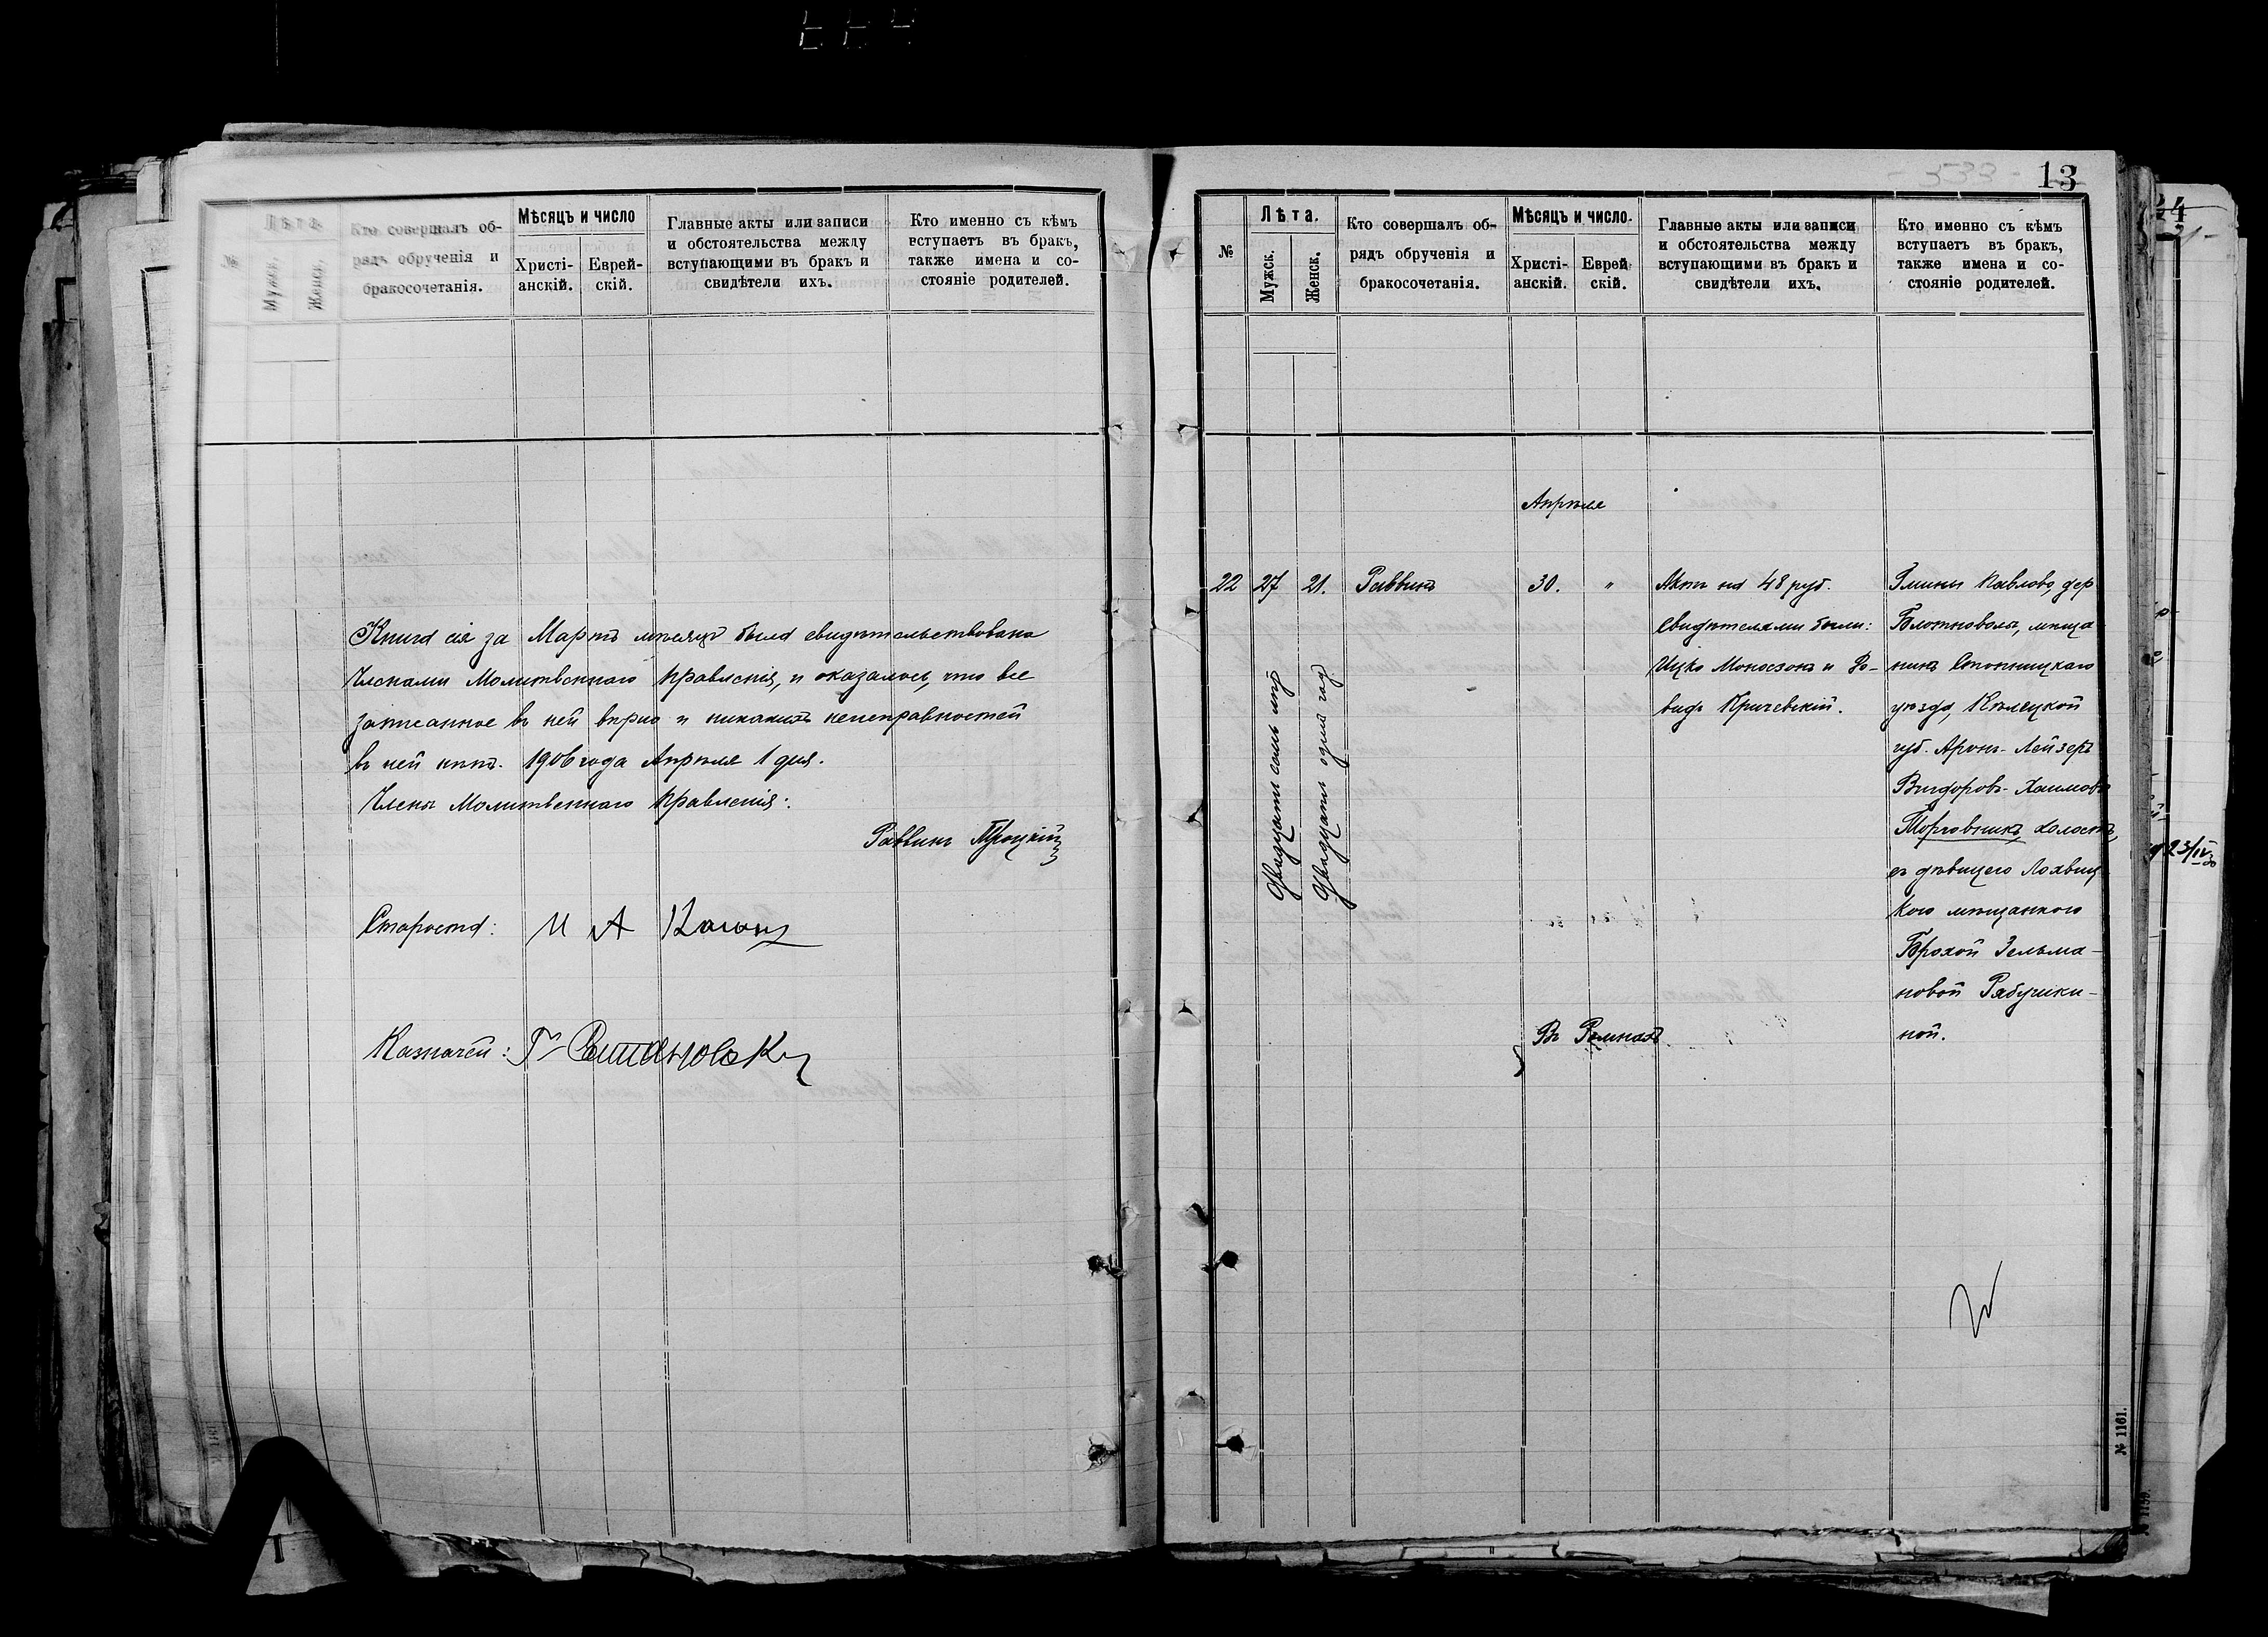 №
Лѣта.
Мужск.
Женск.
Кто совершалъ об-
рядъ обрученія и
бракосочетанія.
Мѣсяцъ и число
Христі-
анскій.
Еврей-
скій.
Главные акты или записи
и обстоятельства между
вступающими въ бракъ и
свидѣтели ихъ.
Кто именно съ кѣмъ
вступаетъ въ бракъ,
также имена и со-
стояніе родителей.
Книга сія за Мартъ мѣсяцъ была свидѣтельствована
Членами Молитвеннаго Правленія, и оказалось, что все
записанное въ ней вѣрно и никакихъ неисправностей
въ ней нѣтъ. 1906 года Апрѣля 1 дня.
Члены Молитвеннаго Правленія:
Раввинъ Троцкій
Староста: И А
Казначей: Г
13
№
Лѣта.
Мужск.
Женск.
Кто совершалъ об-
рядъ обрученія и
бракосочетанія.
Мѣсяцъ и число.
Христі-
анскій.
Еврей-
скій.
Главные акты или записи
и обстоятельства между
вступающими въ бракъ и
свидѣтели ихъ.
Кто именно съ кѣмъ
вступаетъ въ бракъ,
также имена и со-
стояніе родителей.
Апрѣля
22
27
21.
Двадцати семь лѣтъ
Двадцати одинъ годъ
Раввинъ
30.
"
Въ Ромнахъ
Актъ на 48 руб.
Свидѣтелями были:
Ицко Моносзонъ и До-
видъ Кричевскій.
Гмины Павлово, дер
мѣща
нинъ Стопницкаго
уѣзда, Кѣлецкой
губ. Аронъ-Лейзеръ
Вигдоровъ-Хаимовъ
Торговникъ, холостъ,
съ дѣвицею Лохвиц
кою мѣщанкою
Брохой Зельма-
новой Рябушки-
ной.
№ 1161.